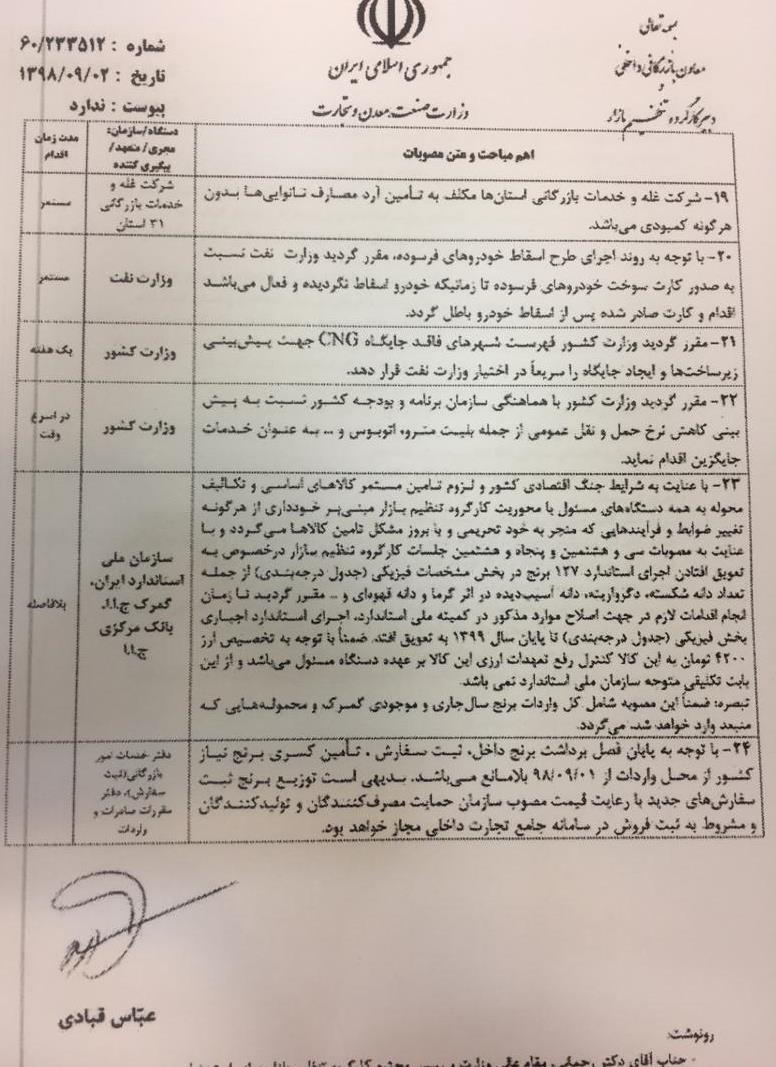 بسمه تعالی
معاون بازرگانی داخلی
و
دبیر کارگروه تنظیم بازار
جمهوری اسلامی ایران
وزارت صنعت، معدن و تجارت
شماره : ۶۰/۲۳۳۵۱۲
تاریخ : ۱۳۹۸/۰۹/۰۲
پیوست : ندارد
اهم مباحث و متن مصوبات
دستگاه/سازمان:
مجری/ متعهد/
پیگیری کننده
مدت زمان
اقدام
۱۹- شرکت غله و خدمات بازرگانی استان‌ها مکلف به تأمین آرد مصارف نانوایی‌ها بدون
هرگونه کمبودی می‌باشد.
شرکت غله و
خدمات بازرگانی
۳۱ استان
مستمر
۲۰- با توجه به روند اجرای طرح اسقاط خودروهای فرسوده، مقرر گردید وزارت نفت نسبت
به صدور کارت سوخت خودروهای فرسوده تا زمانیکه خودرو اسقاط نگردیده و فعال می‌باشد
اقدام و کارت صادر شده پس از اسقاط خودرو باطل گردد.
وزارت نفت
مستمر
۲۱- مقرر گردید وزارت کشور فهرست شهرهای فاقد جایگاه CNG جهت پیش‌بینی
زیرساخت‌ها و ایجاد جایگاه را سریعاً در اختیار وزارت نفت قرار دهد.
وزارت کشور
یک هفته
۲۲- مقرر گردید وزارت کشور با هماهنگی سازمان برنامه و بودجه کشور نسبت به پیش
بینی کاهش نرخ حمل و نقل عمومی از جمله بلیت مترو، اتوبوس و ... به عنوان خدمات
جایگزین اقدام نماید.
وزارت کشور
در اسرع
وقت
۲۳- با عنایت به شرایط جنگ اقتصادی کشور و لزوم تامین مستمر کالاهای اساسی و تکالیف
محوله به همه دستگاه‌های مسئول با محوریت کارگروه تنظیم بازار مبنی‌بر خودداری از هرگونه
تغییر ضوابط و فرآیندهایی که منجر به خود تحریمی و یا بروز مشکل تامین کالاها می‌گردد و با
عنایت به مصوبات سی و هشتمین و پنجاه و هشتمین جلسات کارگروه تنظیم بازار درخصوص به
تعویق افتادن اجرای استاندارد ۱۲۷ برنج در بخش مشخصات فیزیکی (جدول درجه‌بندی) از جمله
تعداد دانه شکسته، دگرواریته، دانه آسیب‌دیده در اثر گرما و دانه قهوه‌ای و ... مقرر گردید تا زمان
انجام اقدامات لازم در جهت اصلاح موارد مذکور در کمیته ملی استاندارد، اجرای استاندارد اجباری
بخش فیزیکی (جدول درجه‌بندی) تا پایان سال ۱۳۹۹ به تعویق افتد. ضمناً با توجه به تخصیص ارز
۴۲۰۰ تومان به این کالا کنترل رفع تعهدات ارزی این کالا بر عهده دستگاه مسئول می‌باشد و از این
بابت تکلیفی متوجه سازمان ملی استاندارد نمی باشد.
تبصره: ضمناً این مصوبه شامل کل واردات برنج سال‌جاری و موجودی گمرک و محموله‌هایی که
منبعد وارد خواهد شد، می‌گردد.
سازمان ملی
استاندارد ایران،
گمرک ج.ا.ا.
بانک مرکزی
ج.ا.ا
بلافاصله
۲۴- با توجه به پایان فصل برداشت برنج داخل، ثبت سفارش ، تأمین کسری برنج نیاز
کشور از محل واردات از ۹۸/۰۹/۰۱ بلامانع می‌باشد. بدیهی است توزیع برنج ثبت
سفارش‌های جدید با رعایت قیمت مصوب سازمان حمایت مصرف‌کنندگان و تولیدکنندگان
و مشروط به ثبت فروش در سامانه جامع تجارت داخلی مجاز خواهد بود.
دفتر خدمات امور
بازرگانی(ثبت
سفارش)، دفتر
مقررات صادرات و
واردات
عبّاس قبادی
رونوشت:
- جناب آقای دکتر رحمانی، مقام عالی وزارت و رییس محترم کارگروه تنظیم بازار